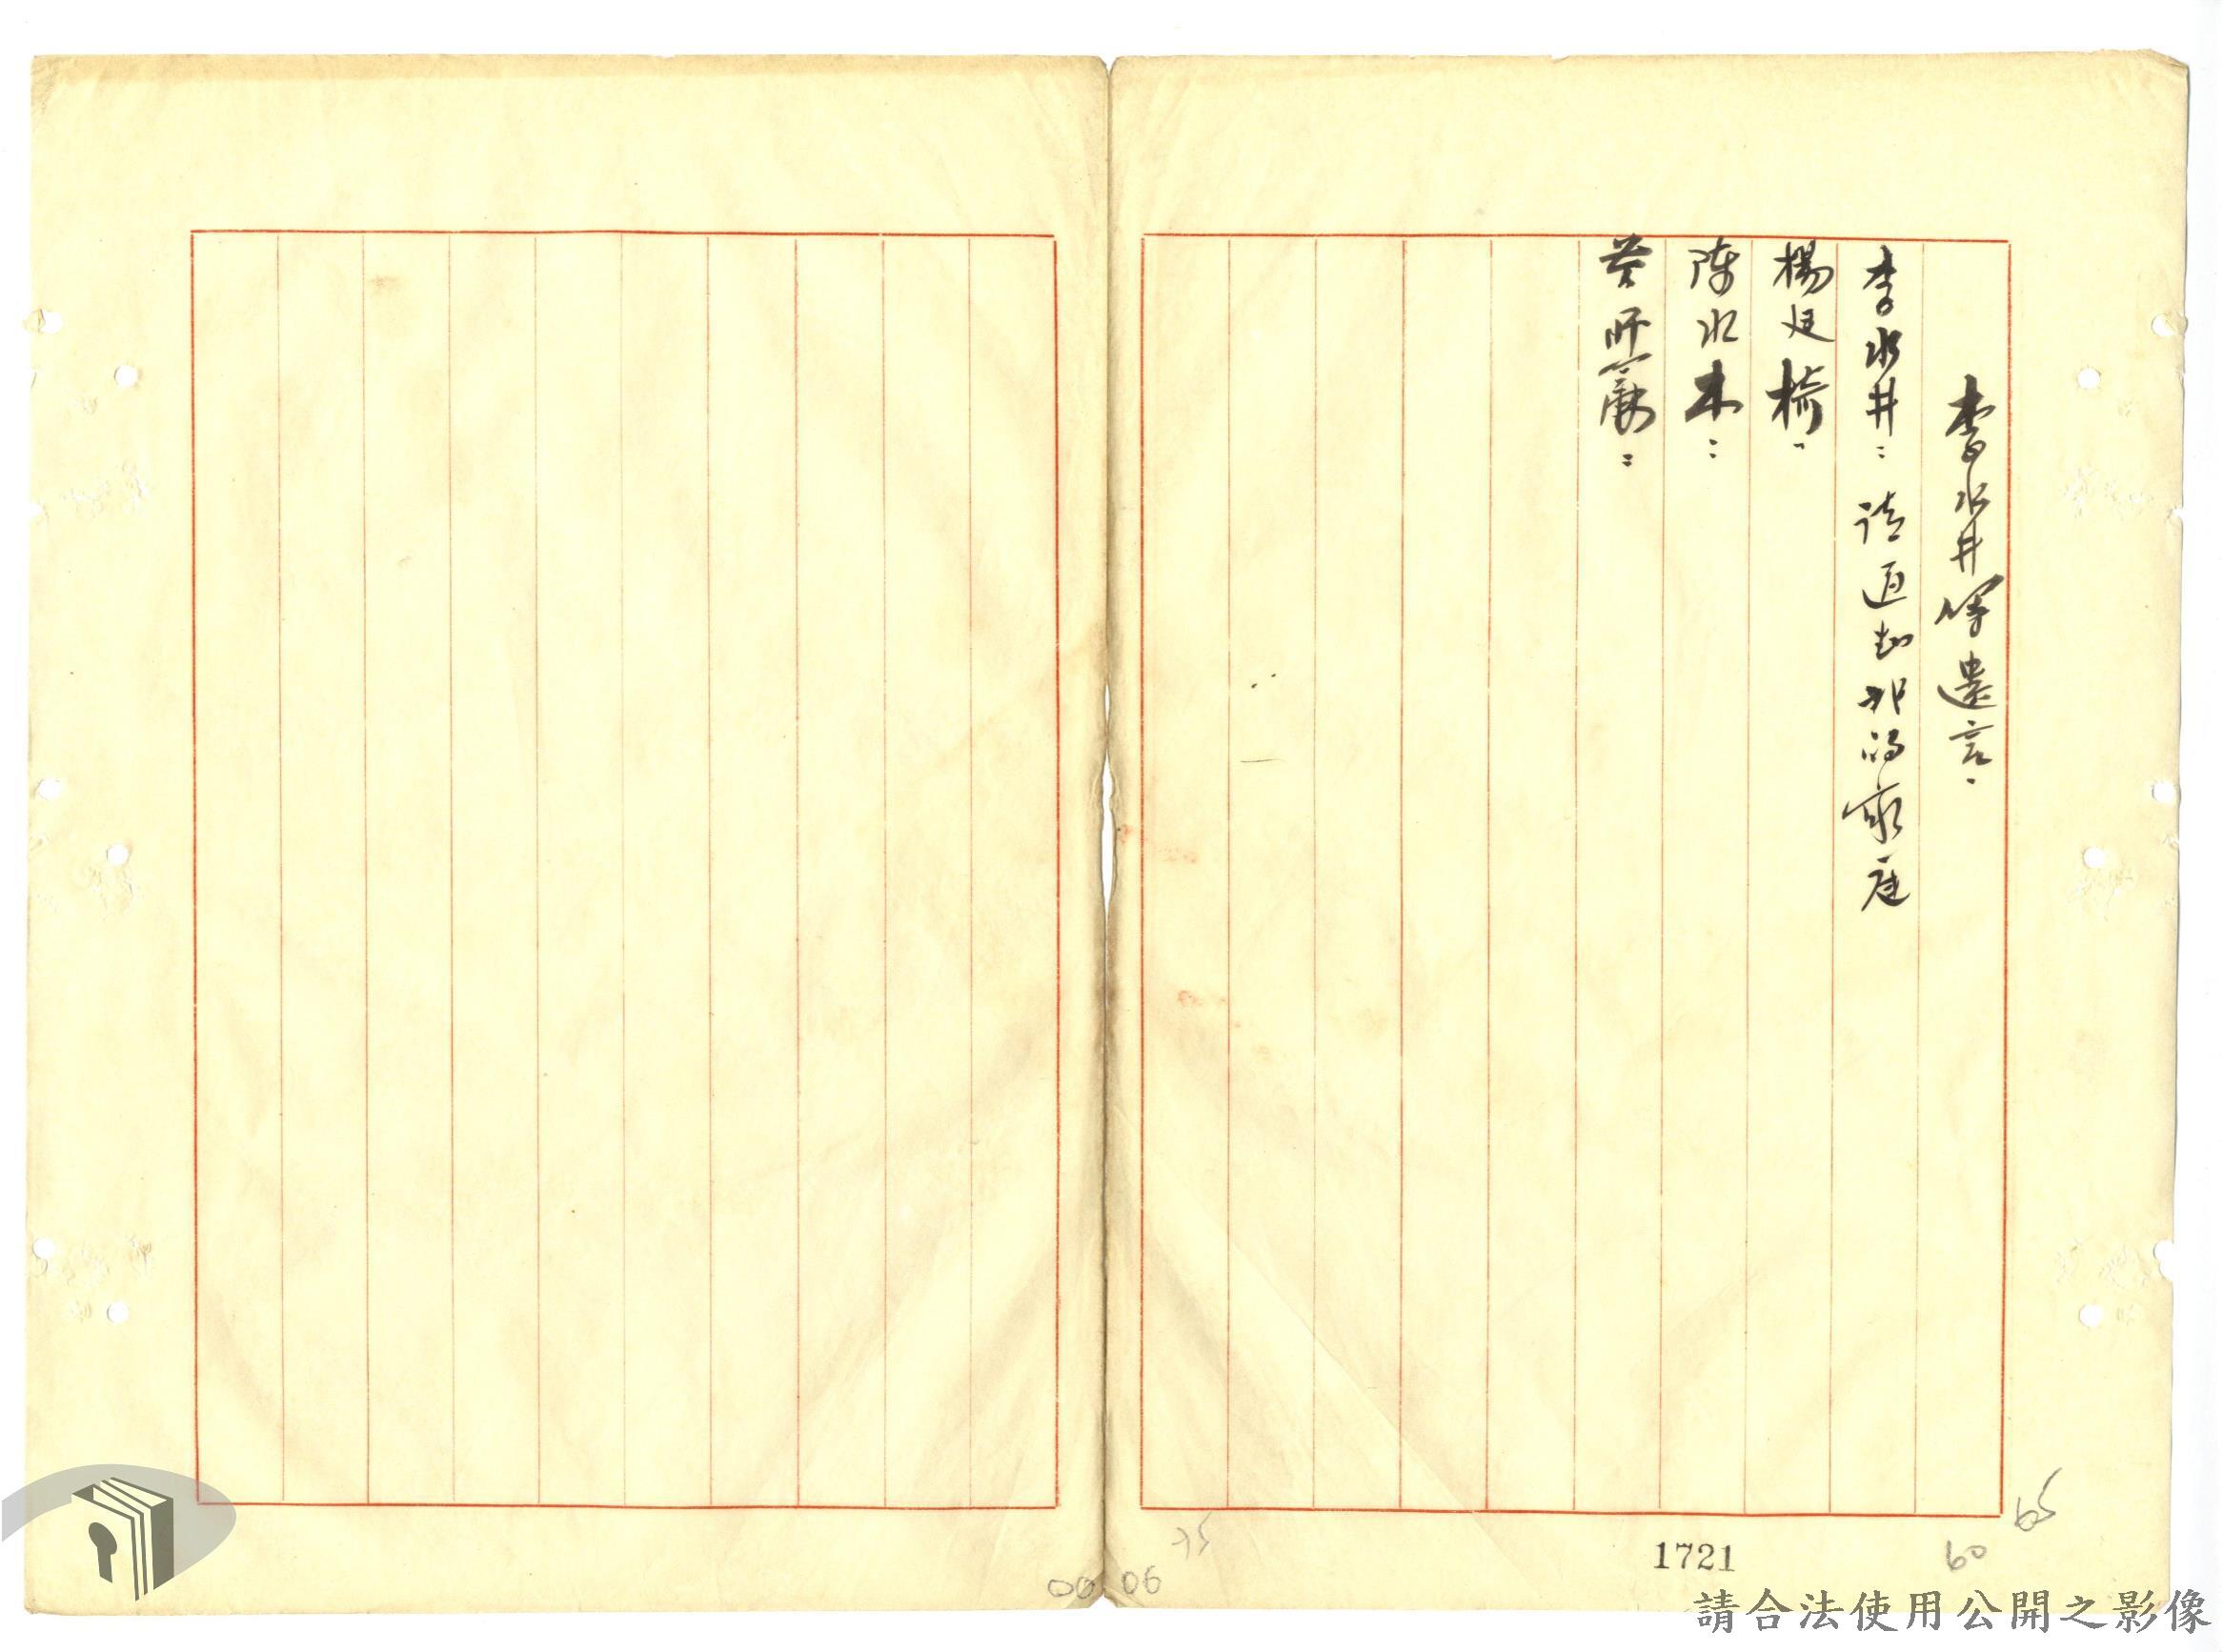 李水井等遺言：
李水井：請通知我的家庭
楊廷椅：
陳水木：
黃師廉：
65
60
1721
75
00 06
請合法使用公開之影像